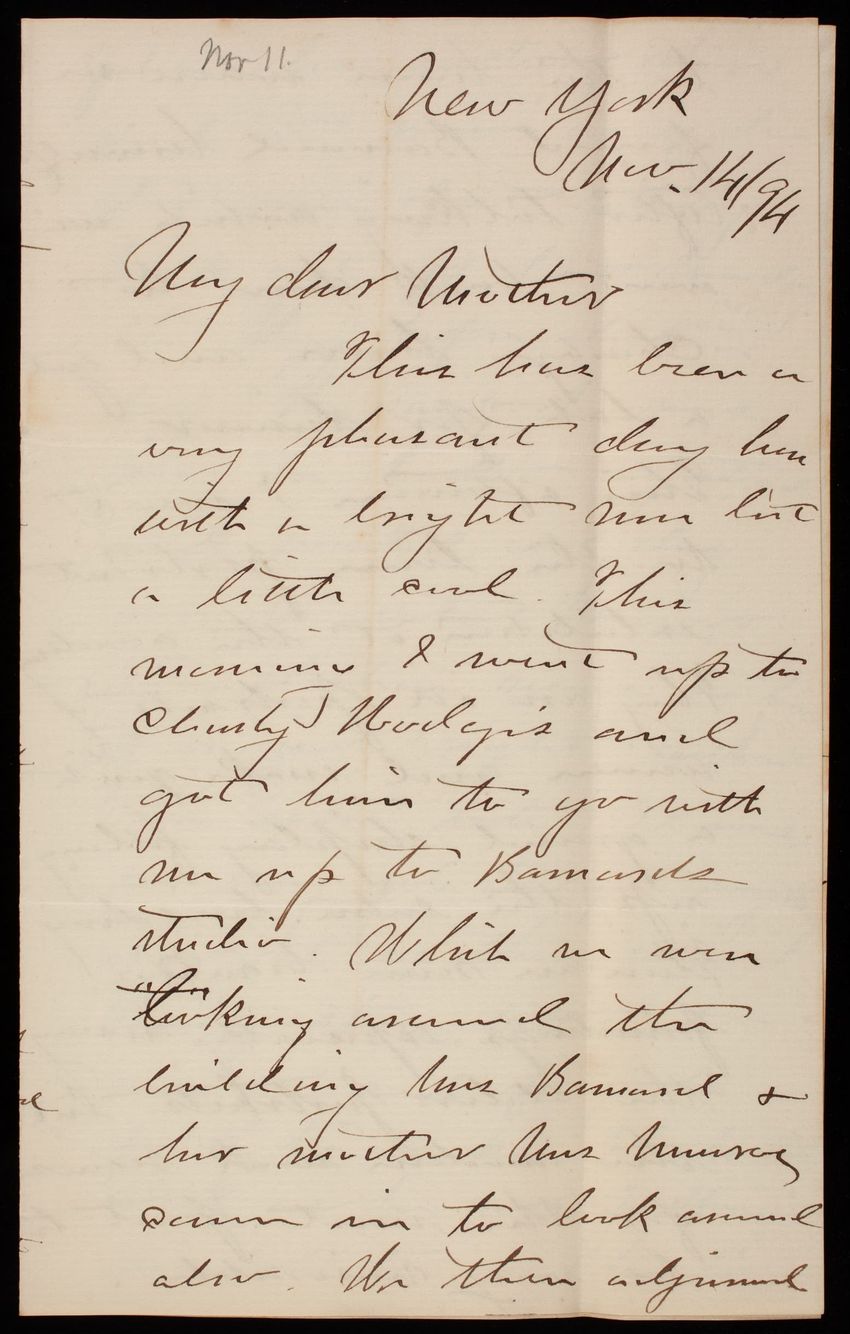 Nov 11.
New York
Nov. 14/94
My dear Mother
This has been a
very pleasant day here
with a bright sun but
a little cool. This
morning I went up to
Hodges and
got him to go with
me up to Barnards
studio. While we were
looking around the
building Mrs Barnard &
her mother Mrs Monroe
came in to look around
also. We then adjourned